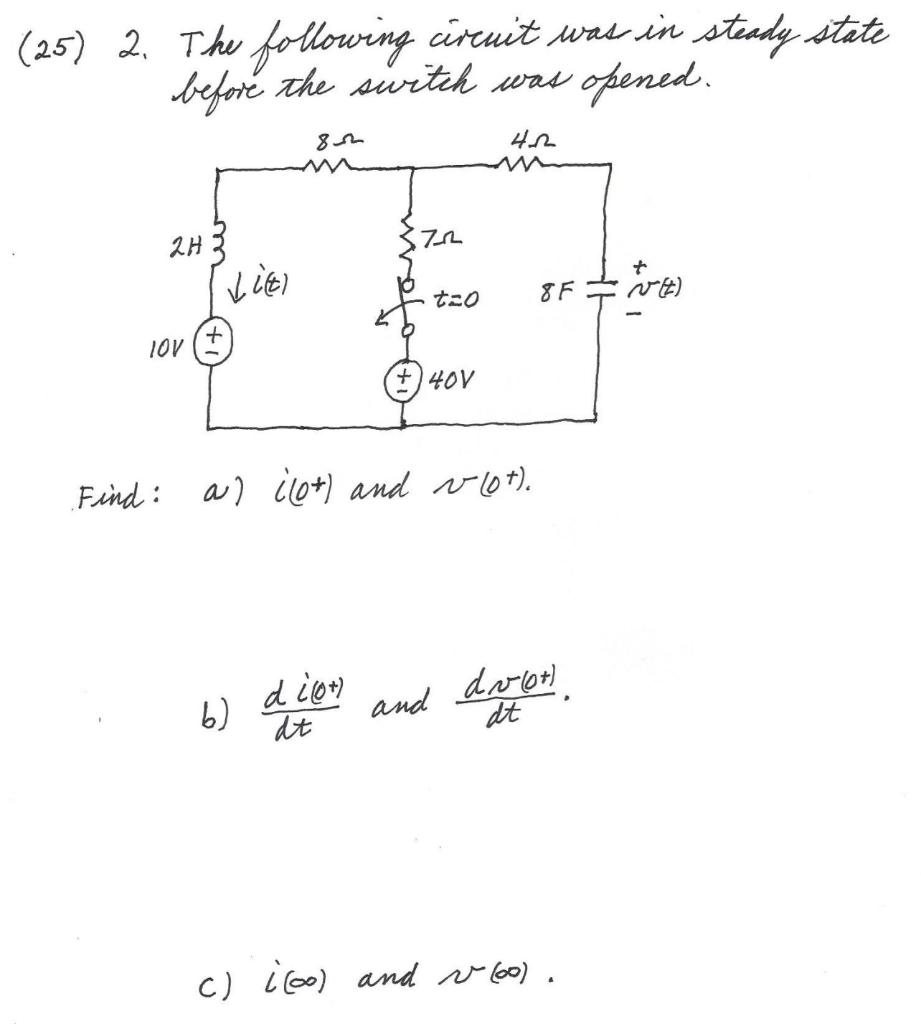 (25) 2. The following circuit was in steady state
before the switch was opened.
8Ω 4Ω
2H 7Ω
i(t) t=0 8F + v(t) -
10V + -
+ - 40V
Find: a) i(0+) and v(0+).
b) di(0+)/dt and dv(0+)/dt.
c) i(∞) and v(∞).